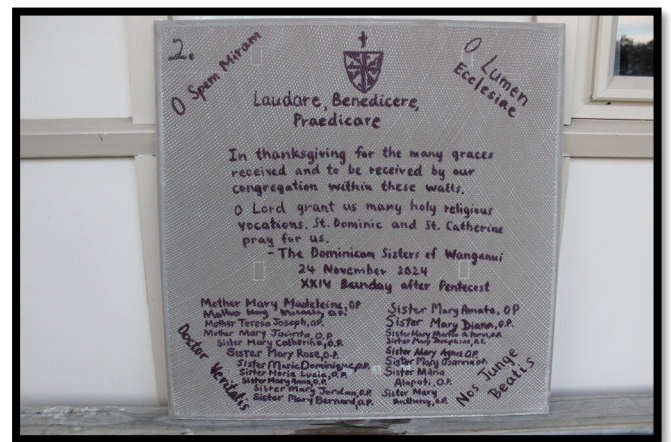 2.
O Spem Miram
O Lumen
Ecclesiae
Laudare, Benedicere,
Praedicare
In thanksgiving for the many graces
received and to be received by our
congregation within these walls.
O Lord grant us many holy religious
vocations. St. Dominic and St. Catherine
pray for us.
- The Dominican Sisters of Wanganui
24 November 2024
XXIV Sunday after Pentecost
Mother Mary Madeleine, OP
Mother Mary O.P.
Mother Teresa Joseph, O.P.
Mother Mary Jacinta, O.P.
Sister Mary Catherine, O.P.
Sister Mary Rose, O.P.
Sister Marie Dominique, O.P.
Sister Maria Lucia, O.P.
Sister Mary Anna, O.P.
Sister Mary Jordan, O.P.
Sister Mary Bernard, O.P.
Sister Mary Amata, OP
Sister Mary Diana, O.P.
Sister Mary Martin de Porres, O.P.
Sister Mary Josephine, O.P.
Sister Mary Agnes O.P.
Sister Mary Joanna O.P.
Sister Maria
Alapati, O.P.
Sister Mary
Anthony, O.P.
Doctor Veritatis
Nos Junge
Beatis